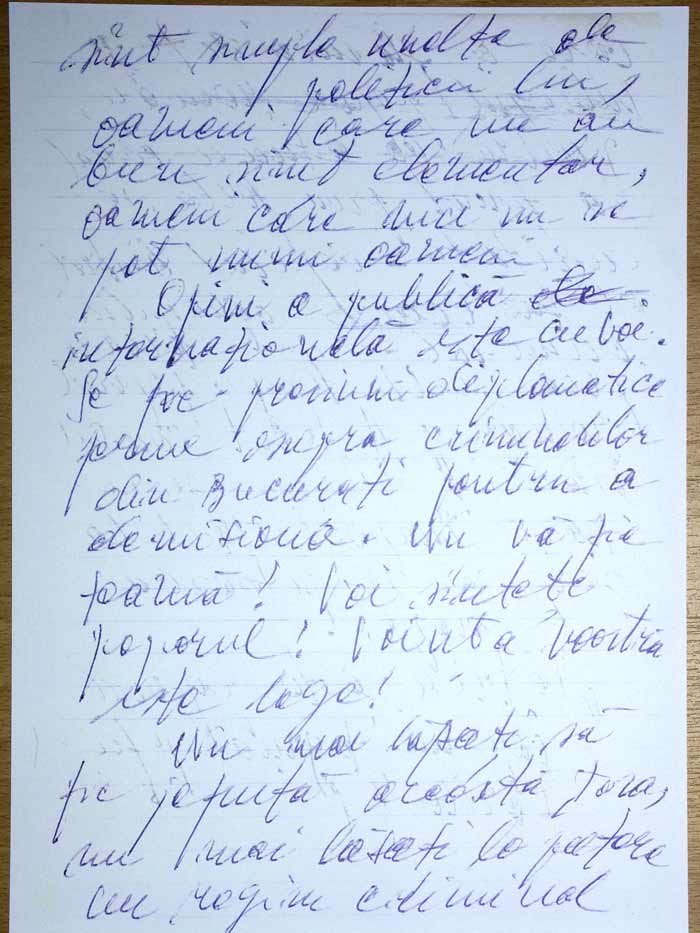 sînt simple unelte ale
politicii lui,
oameni care nu au
bun simt elementar,
oameni care nici nu se
pot numi oameni.
Opinia publică
internațională este cu voi.
Se fac presiuni diplomatice
asupra criminalilor
din București pentru a
demisiona. Nu vă fie
teamă! Voi sînteti
poporul! Vointa voastra
este lege!
Nu mai lăsati să
fie jefuită această țara,
nu mai lăsati la putere
un regim criminal